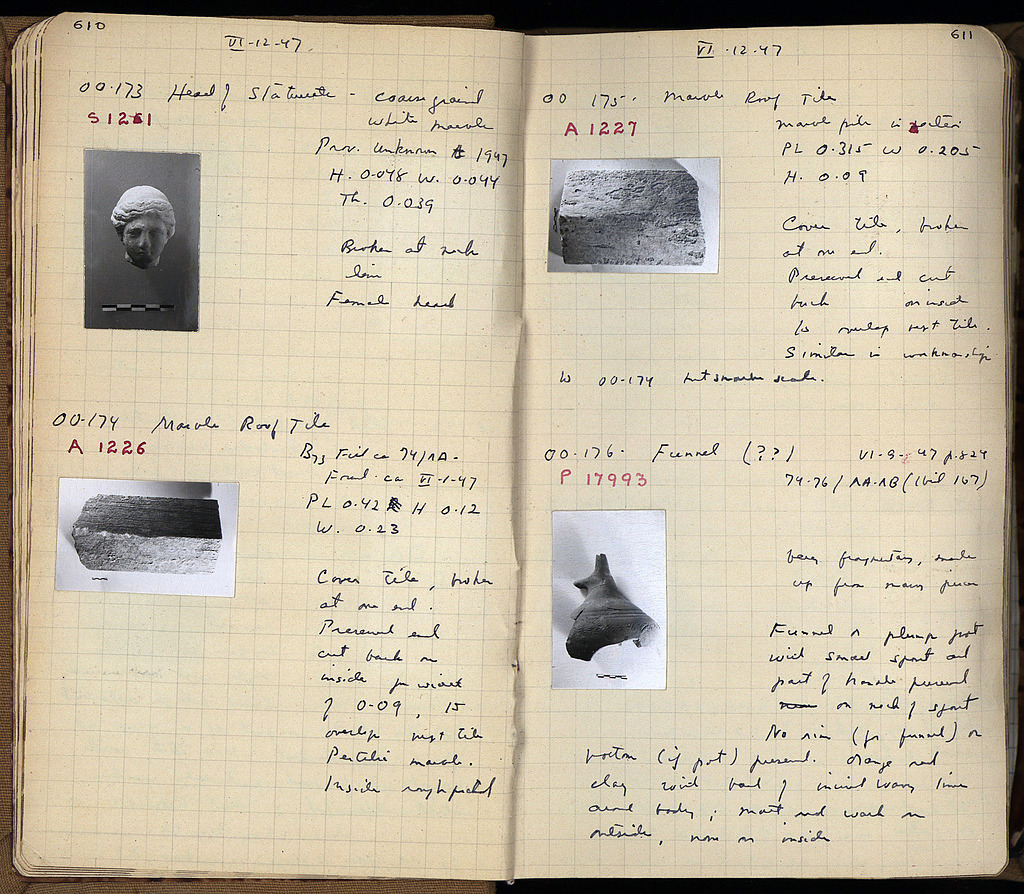 610
VI-12-47
00·173 Head of Statuette - coarse grained
S 1251
white marble
Prov. unknown 1947
H. 0.048 W. 0.044
Th. 0.039
Broken at neck
line
Female head
00-174 Marble Roof Tile
A 1226
Byz Fill ca 74/ΛΑ-
Found ca VI-1-47
PL 0.42 H 0.12
W. 0.23
Cover tile, broken
at one end.
Preserved end
cut back on
inside for width
of 0.09, to
overlap next tile
Pentelic marble.
Inside rough picked
611
VI·12-47
00 175· Marble Roof Tile
A 1227
marble pile in
PL 0.315 W 0.205
H. 0.09
Cover tile, broken
at one end.
Preserved end cut
back on inside
to overlap next tile.
Similar in workmanship
to 00-174 but smaller scale.
00-176· Funnel (??) VI-9-47 p.824
P 17993
74-76/ΛΑ-ΛΒ
Very fragmentary, made
up from many pieces
Funnel or plump pot
with small spout and
part of handle preserved
on neck of spout
No rim (for funnel) or
bottom (if pot) preserved. Orange red
clay with band of incised wavy lines
around body; matt red wash on
outside, none on inside